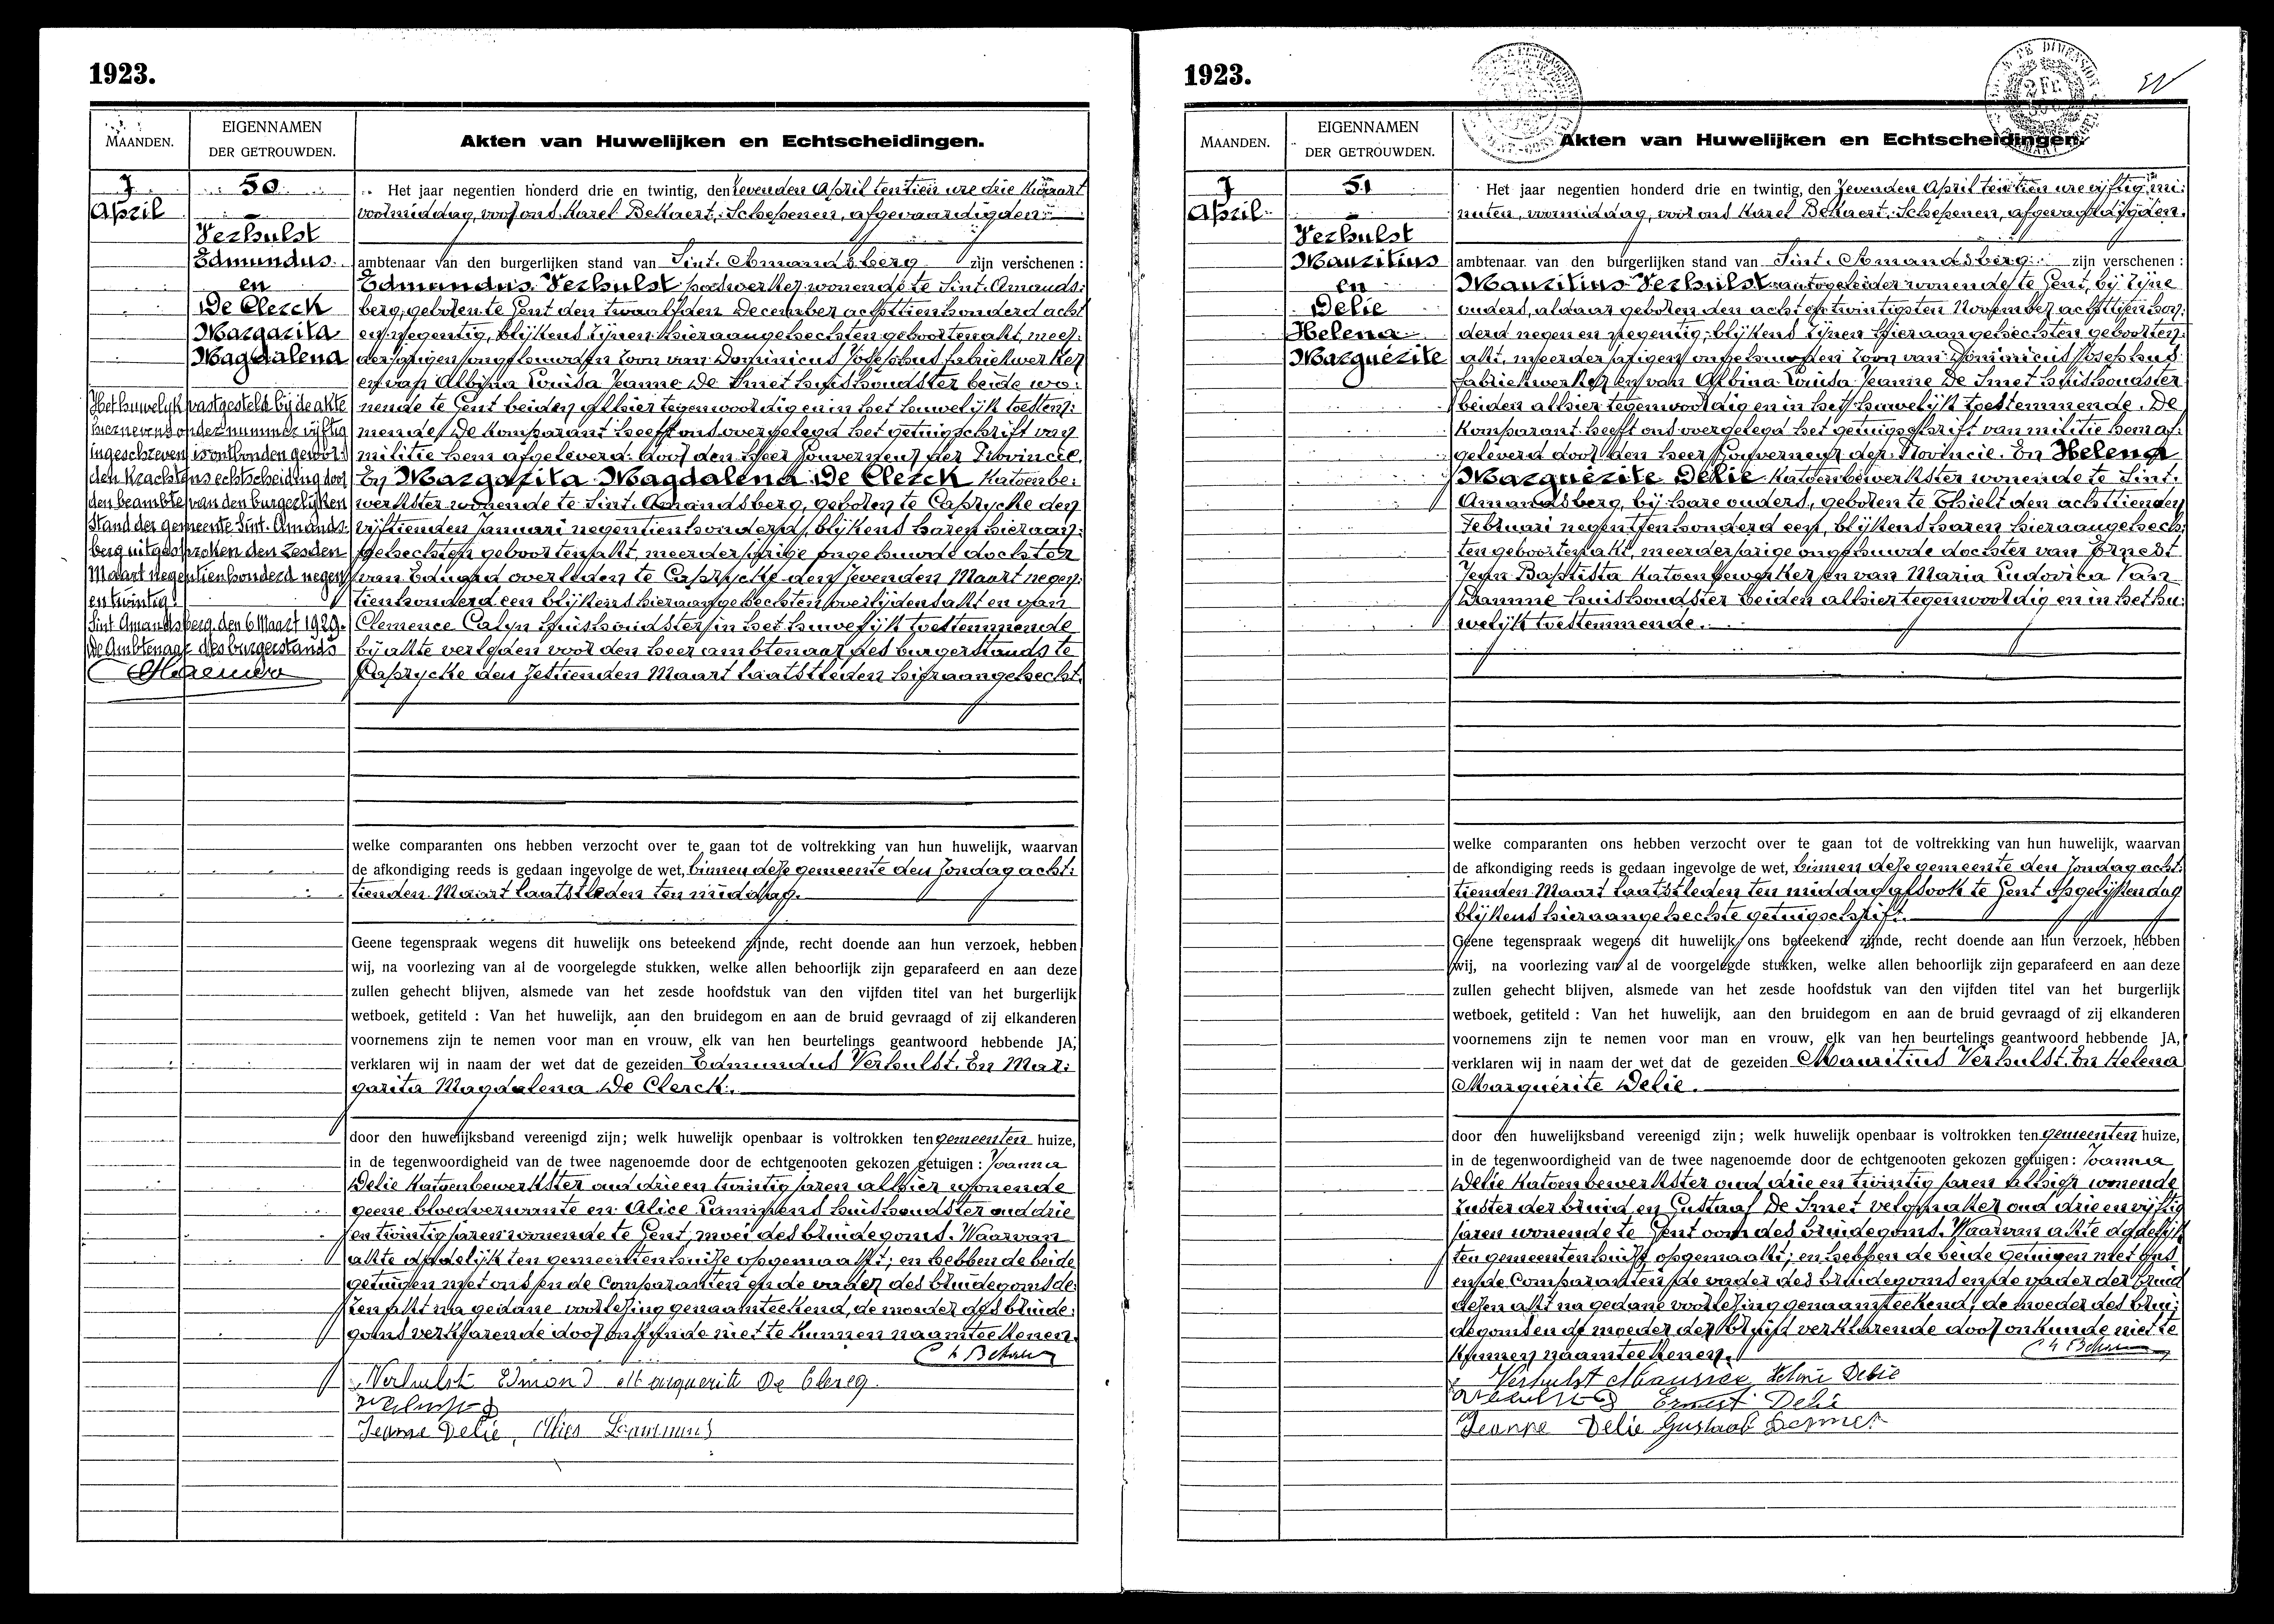 1923.
MAANDEN.
EIGENNAMEN
DER GETROUWDEN.
Akten van Huwelijken en Echtscheidingen.
7
April
50
Verhulst
Edmundus
en
De Clerck
Margarita
Magdalena
Het huwelijk vastgesteld bij de akte
hiernevens onder nummer vijftig
ingeschreven is ontbonden gewor:
den krachtens echtscheiding door
den beambte van den burgerlijken
Stand der gemeente Sint-Amands:
berg uitgesproken den zesden
Maart negentienhonderd negen
en twintig.
Sint Amandsberg, den 6 Maart 1929.
De Ambtenaar des burgerstands
Het jaar negentien honderd drie en twintig, den zevenden April ten tien ure drie kwaart
voormiddag, voor ons Karel Bekaert, Schepenen, afgevaardigden
ambtenaar van den burgerlijken stand van Sint-Amandsberg zijn verschenen :
Edmundus Verhulst wonende te Sint-Amands:
berg, geboren te Gent den twaalfden December achttienhonderd acht
en negentig, blijkens zijnen hieraangehechten geboortenakt, meer:
derjarigen ongehuwden zoon van Dominicus Josephus fabriekwerker
en van Albina Louisa Jeanne De Smet huishoudster beide wo:
nende te Gent beiden alhier tegenwoordig en in het huwelijk toestem:
mende. De komparant heeft ons overgelegd het getuigschrift van
militie hem afgeleverd door den Heer Gouverneur der Provincie.
En Margarita Magdalena De Clerck Katoenbe:
werkster wonende te Sint-Amandsberg, geboren te Caprycke den
vijftienden Januari negentienhonderd, blijkens haren hieraan:
gehechten geboortenakt, meerderjarige ongehuwde dochter
van Eduard overleden te Caprycke den zevenden Maart negen:
tienhonderd een blijkens hieraangehechten overlijdensakt en van
Clemence Calyn huishoudster in het huwelijk toestemmende
bij akte verleden voor den heer ambtenaar des burgerstands te
Caprycke den zestienden Maart laatstleden hieraangehecht.
welke comparanten ons hebben verzocht over te gaan tot de voltrekking van hun huwelijk, waarvan
de afkondiging reeds is gedaan ingevolge de wet, binnen deze gemeente den zondag acht:
tienden Maart laatstleden ten middag.
Geene tegenspraak wegens dit huwelijk ons beteekend zijnde, recht doende aan hun verzoek, hebben
wij, na voorlezing van al de voorgelegde stukken, welke allen behoorlijk zijn geparafeerd en aan deze
zullen gehecht blijven, alsmede van het zesde hoofdstuk van den vijfden titel van het burgerlijk
wetboek, getiteld : Van het huwelijk, aan den bruidegom en aan de bruid gevraagd of zij elkanderen
voornemens zijn te nemen voor man en vrouw, elk van hen beurtelings geantwoord hebbende JA,
verklaren wij in naam der wet dat de gezeiden Edmundus Verhulst. En Mar:
garita Magdalena De Clerck.
door den huwelijksband vereenigd zijn; welk huwelijk openbaar is voltrokken ten gemeenten huize,
in de tegenwoordigheid van de twee nagenoemde door de echtgenooten gekozen getuigen : Joanna
Delie Katoenbewerkster oud drie en twintig jaren alhier wonende
geene bloedverwante en Alice Lammens huishoudster oud drie
en twintig jaren wonende te Gent, moei des bruidegoms. Waarvan
akte dadelijk ten gemeentenhuize opgemaakt; en hebben de beide
getuigen met ons en de Comparanten en de vader des bruidegoms de:
zen akt na gedane voorlezing genaamteekend, de moeder des bruide:
goms verklarende door onkunde niet te kunnen naamteekenen.
Verhulst Edmond Marguerite De Clercq
Jeanne Delie, Alice Lammens
1923.
MAANDEN.
EIGENNAMEN
DER GETROUWDEN.
Akten van Huwelijken en Echtscheidingen.
7
April
51
Verhulst
Mauritius
en
Delie
Helena
Marguérite
Het jaar negentien honderd drie en twintig, den zevenden April ten tien ure vijftig mi:
nuten, voormiddag, voor ons Karel Bekaert, Schepenen, afgevaardigden
ambtenaar van den burgerlijken stand van Sint-Amandsberg zijn verschenen :
Mauritius Verhulst autogeleider wonende te Gent, bij zijne
ouders, aldaar geboren den acht en twintigsten November achttienhon:
derd negen en negentig, blijkens zijnen hieraangehechten geboorten:
akt, meerderjarigen ongehuwden zoon van Dominicus Josephus
fabriekwerker en van Albina Louisa Jeanne De Smet huishoudster
beiden alhier tegenwoordig en in het huwelijk toestemmende. De
Komparant heeft ons overgelegd het getuigschrift van militie hem af:
geleverd door den Heer Gouverneur der Provincie. En Helena
Marguérite Delie Katoenbewerkster wonende te Sint-
Amandsberg, bij hare ouders, geboren te Thielt den achttienden
Februari negentienhonderd een, blijkens haren hieraangehech:
ten geboortenakt, meerderjarige ongehuwde dochter van Ernest
Jean Baptista Katoenbewerker en van Maria Ludovica Van
Damme huishoudster beiden alhier tegenwoordig en in het hu:
welijk toestemmende.
welke comparanten ons hebben verzocht over te gaan tot de voltrekking van hun huwelijk, waarvan
de afkondiging reeds is gedaan ingevolge de wet, binnen deze gemeente den zondag acht:
tienden Maart laatstleden ten middag alsook te Gent opgelijken dag
blijkens hieraangehechte getuigschrift.
Geene tegenspraak wegens dit huwelijk ons beteekend zijnde, recht doende aan hun verzoek, hebben
wij, na voorlezing van al de voorgelegde stukken, welke allen behoorlijk zijn geparafeerd en aan deze
zullen gehecht blijven, alsmede van het zesde hoofdstuk van den vijfden titel van het burgerlijk
wetboek, getiteld : Van het huwelijk, aan den bruidegom en aan de bruid gevraagd of zij elkanderen
voornemens zijn te nemen voor man en vrouw, elk van hen beurtelings geantwoord hebbende JA,
verklaren wij in naam der wet dat de gezeiden Mauritius Verhulst. En Helena
Marguérite Delie.
door den huwelijksband vereenigd zijn; welk huwelijk openbaar is voltrokken ten gemeenten huize,
in de tegenwoordigheid van de twee nagenoemde door de echtgenooten gekozen getuigen : Joanna
Delie Katoenbewerkster oud drie en twintig jaren alhier wonende
zuster der bruid en Gustaaf De Smet velomaker oud drie en vijftig
jaren wonende te Gent oom des bruidegoms. Waarvan akte dadelijk
ten gemeentenhuize opgemaakt; en hebben de beide getuigen met ons
en de Comparanten, de vader des bruidegoms en de vader der bruid
dezen akt na gedane voorlezing genaamteekend; de moeder des brui:
degoms en de moeder der bruid verklarende door onkunde niet te
kunnen naamteekenen.
Verhulst Maurice Helene Delie
Ernest Delie
Jeanne Delie Gustaaf Desmet